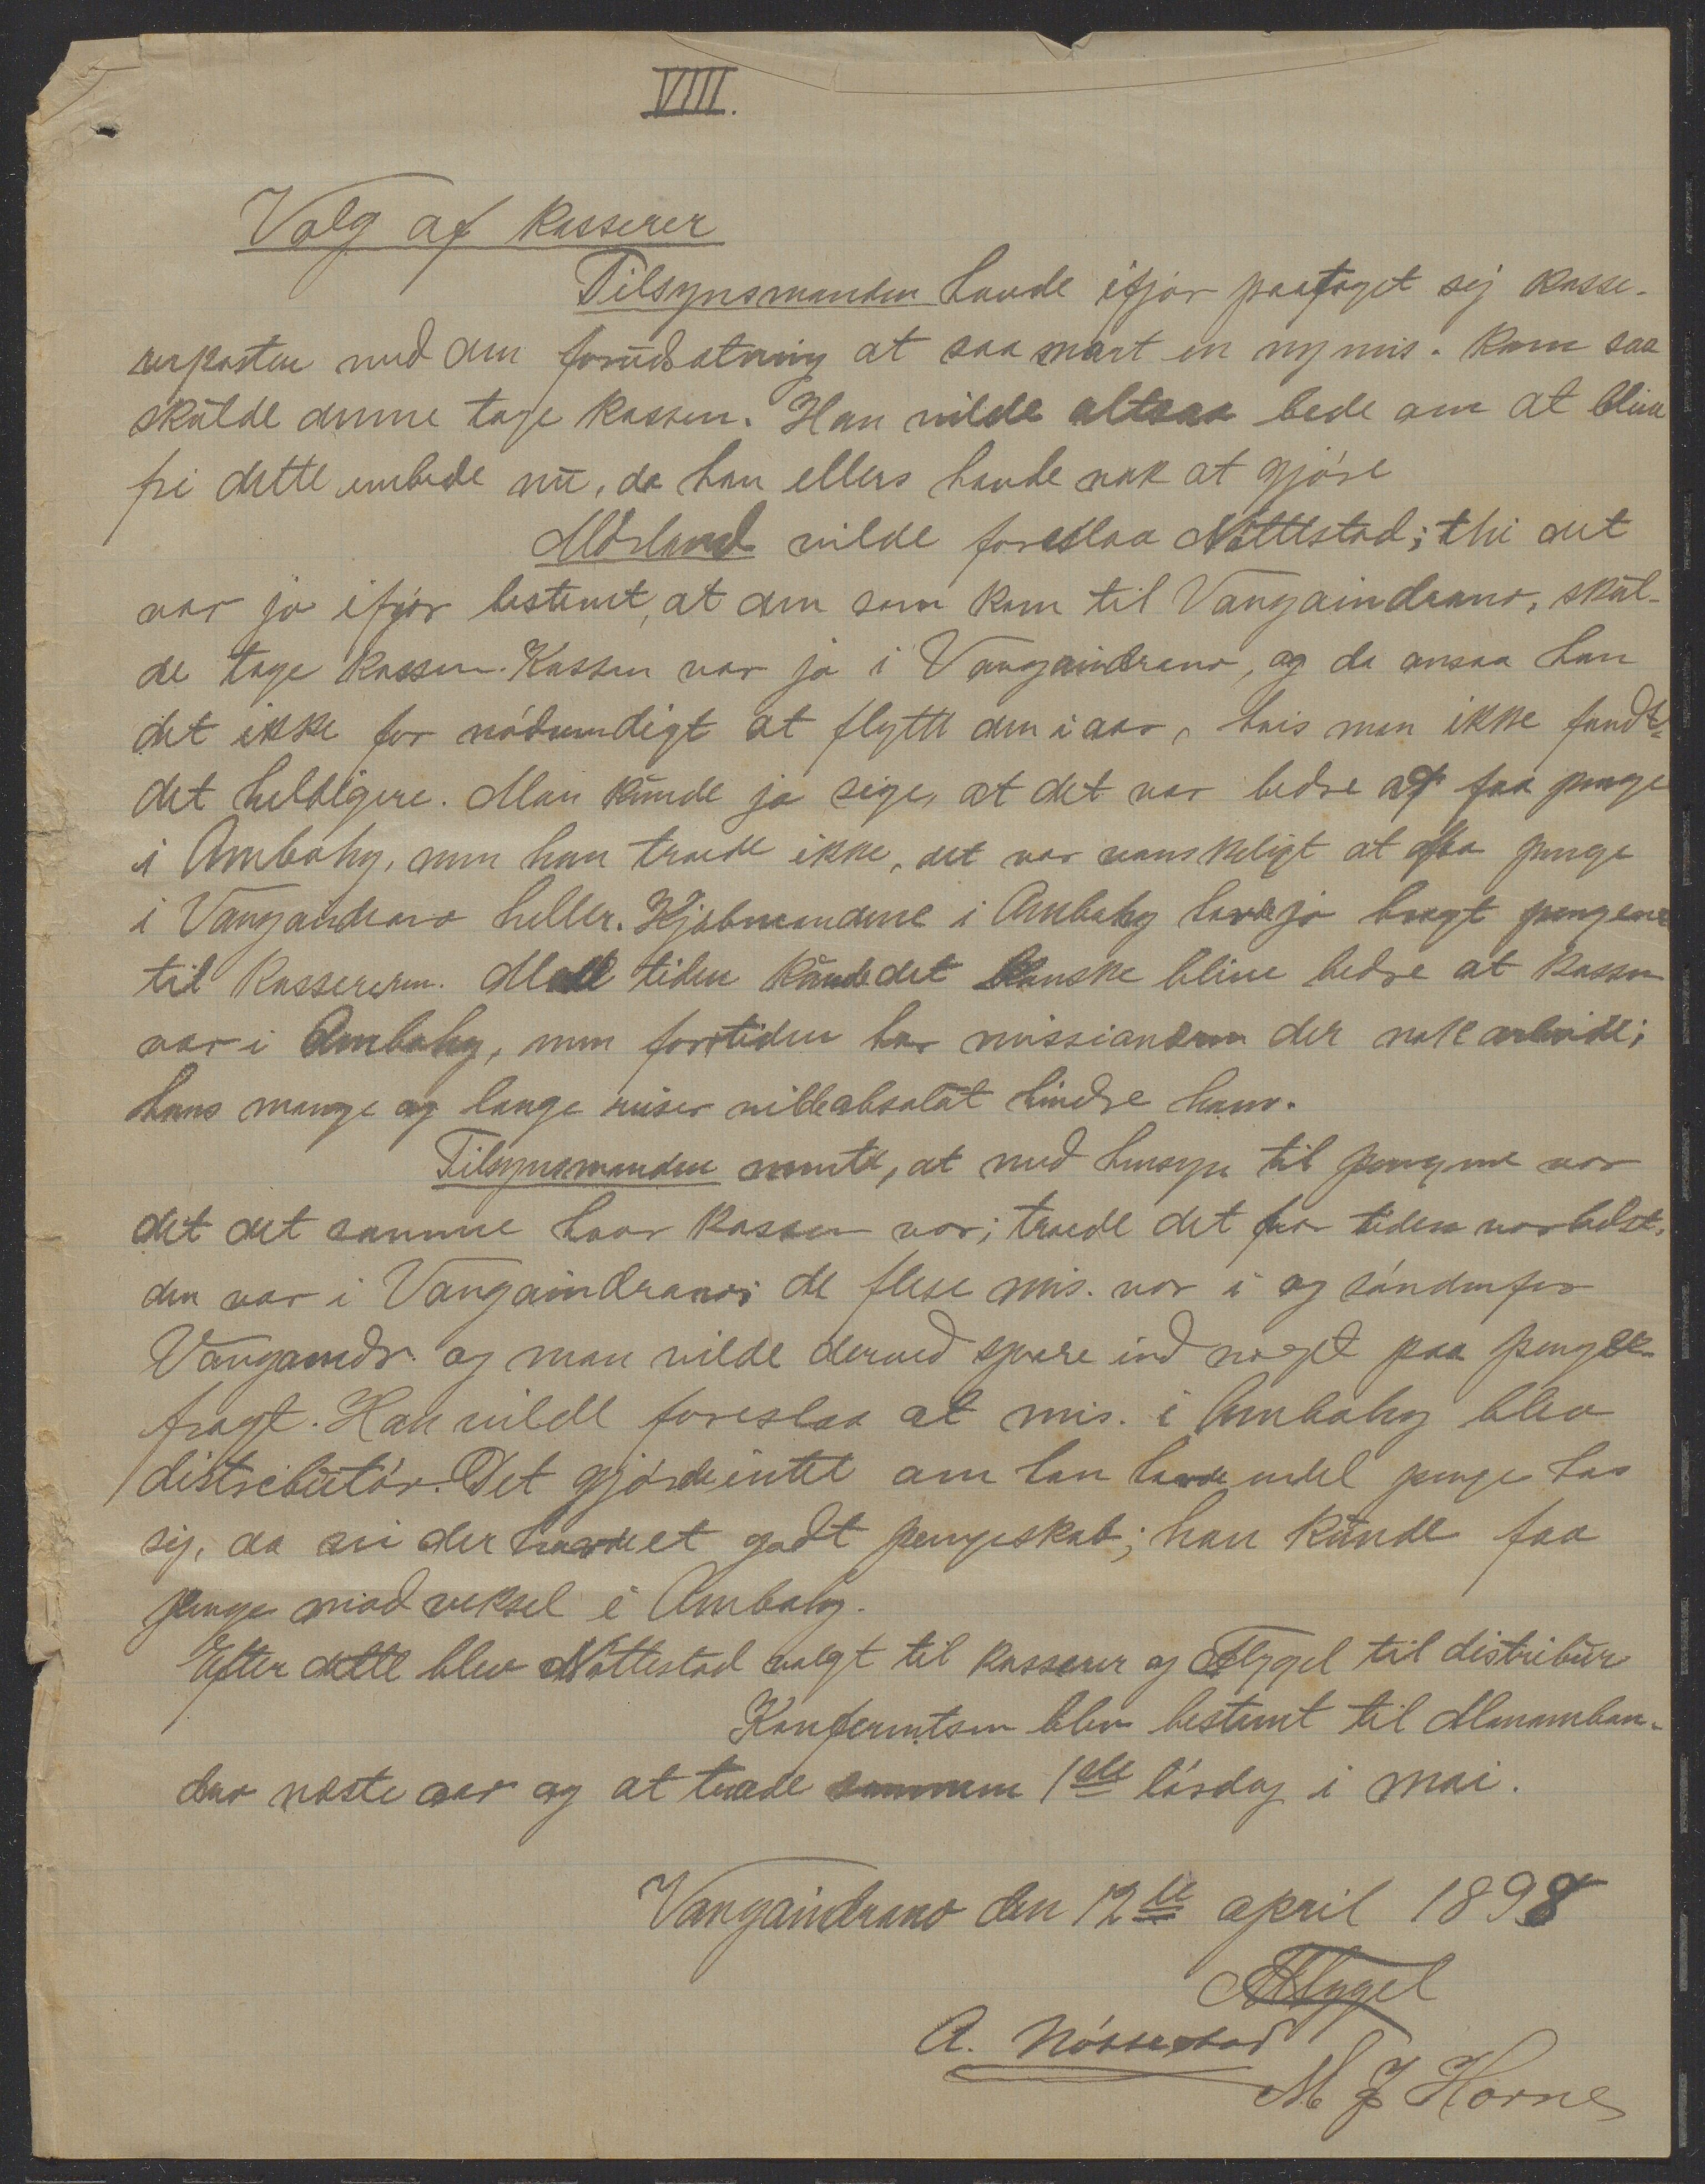 VIII.
Valg af kasserer
Tilsynsmanden havde ifjor paataget sig kasse-
rerposten med den forudsætning at saa snart en ny mis. kom saa
skulde denne tage kassen. Han vilde altsaa bede om at blive
fri dette embede nu, da han ellers havde nok at gjøre
Mørland vilde foreslaa Nøttestad; thi det
var jo ifjor bestemt, at den som kom til Vangaindrano, skul-
de tage kassen. Kassen var jo i Vangaindrano, og da ansaa han
det ikke for nødvendigt at flytte den i aar, hvis man ikke fandt
det heldigere. Man kunde jo sige, at det var bedre at faa penge
i Ambahy, men han troede ikke, det var vanskeligt at faa penge
i Vangaindrano heller. Kjøbmændene i Ambahy havde jo bragt pengene
til kassereren. Med tiden kunde det kanske blive bedre at kassen
var i Ambahy, men fortiden har missionæren der nok arbeide;
hans mange og lange reiser vilde absolut hindre ham.
Tilsynsmanden mente, at med hensyn til pengene var
det det samme hvor kassen var; troede det for tiden var bedst,
den var i Vangaindrano; de flese mis. var i og søndenfor
Vangaindr. og man vilde derved spare ind noget paa penge-
fragt. Han vilde foreslaa at mis. i Ambahy blev
distributør. Det gjorde intet om han havde endel penge hos
sig, da vi der havde et godt pengeskab; han kunde faa
penge mod veksel i Ambahy.
Efter dette blev Nøttestad valgt til kasserer og Flygel til distribur
Konferentsen blev bestemt til Manamban-
dro næste aar og at træde sammen 1ste lørdag i mai.
Vangaindrano den 12te april 1898
Flygel
A. Nøttestad
M J Hornes